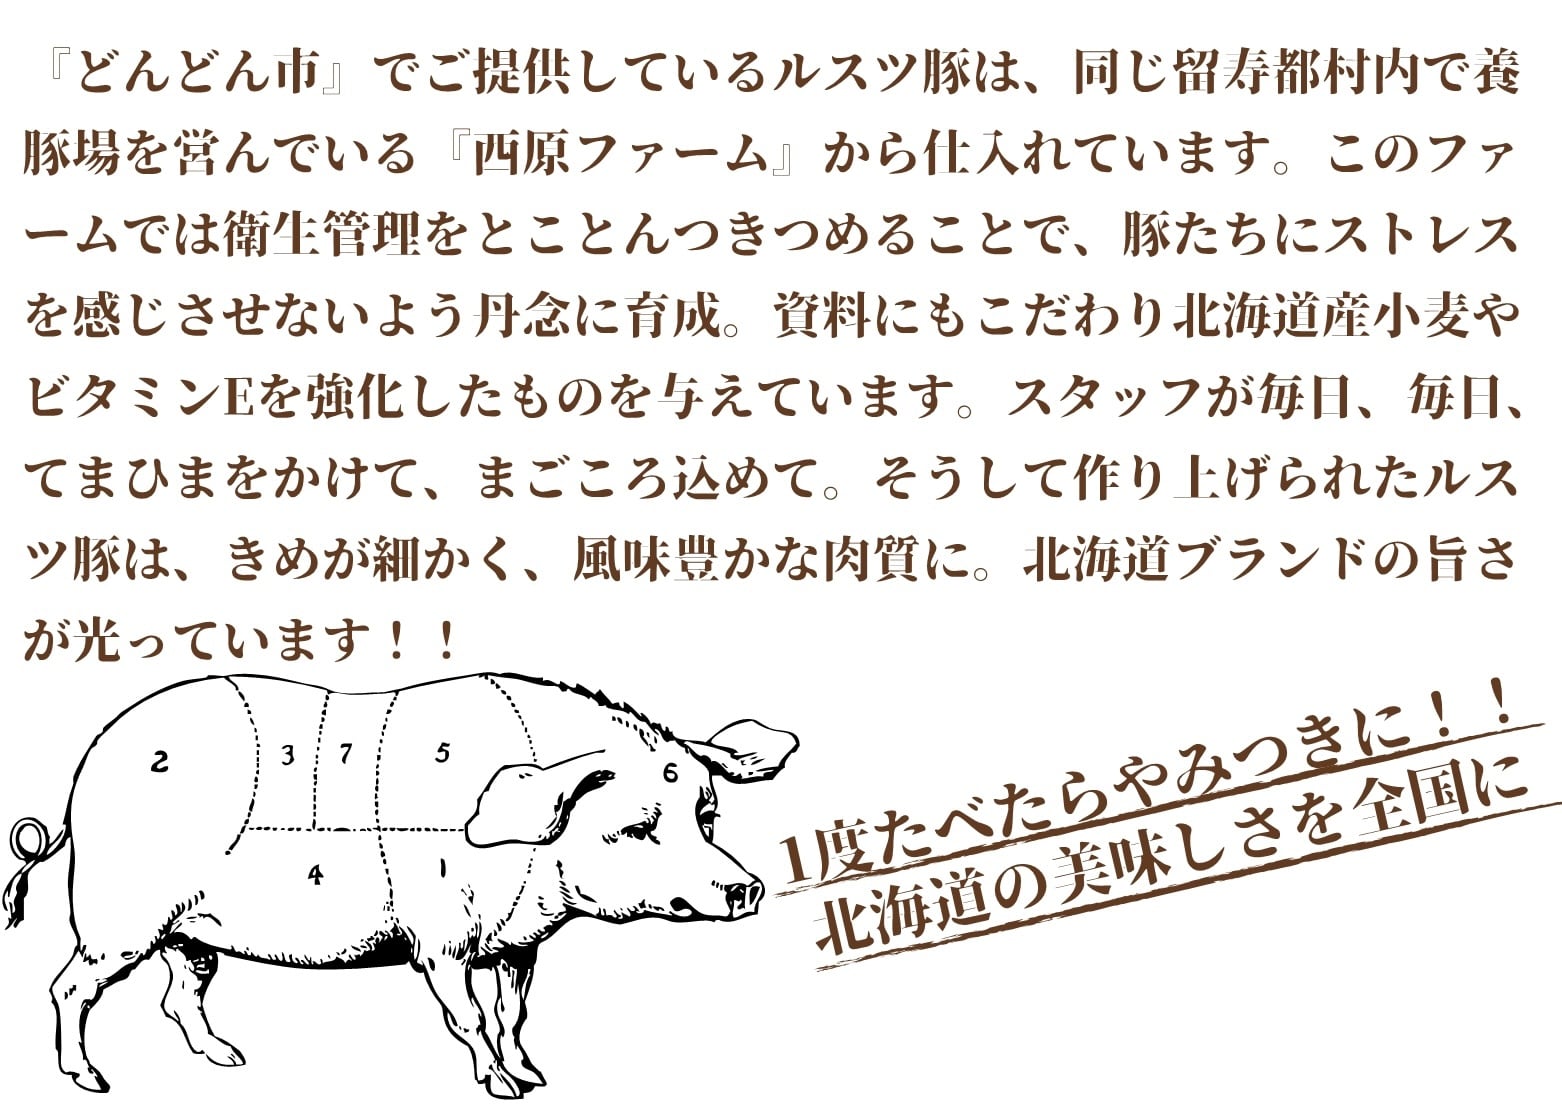 『どんどん市』でご提供しているルスツ豚は、同じ留寿都村内で養
豚場を営んでいる『西原ファーム』から仕入れています。このファ
ームでは衛生管理をとことんつきつめることで、豚たちにストレス
を感じさせないよう丹念に育成。資料にもこだわり北海道産小麦や
ビタミンEを強化したものを与えています。スタッフが毎日、毎日、
てまひまをかけて、まごころ込めて。そうして作り上げられたルス
ツ豚は、きめが細かく、風味豊かな肉質に。北海道ブランドの旨さ
が光っています！！
2 3 7 5 6
4 1
1度たべたらやみつきに！！
北海道の美味しさを全国に